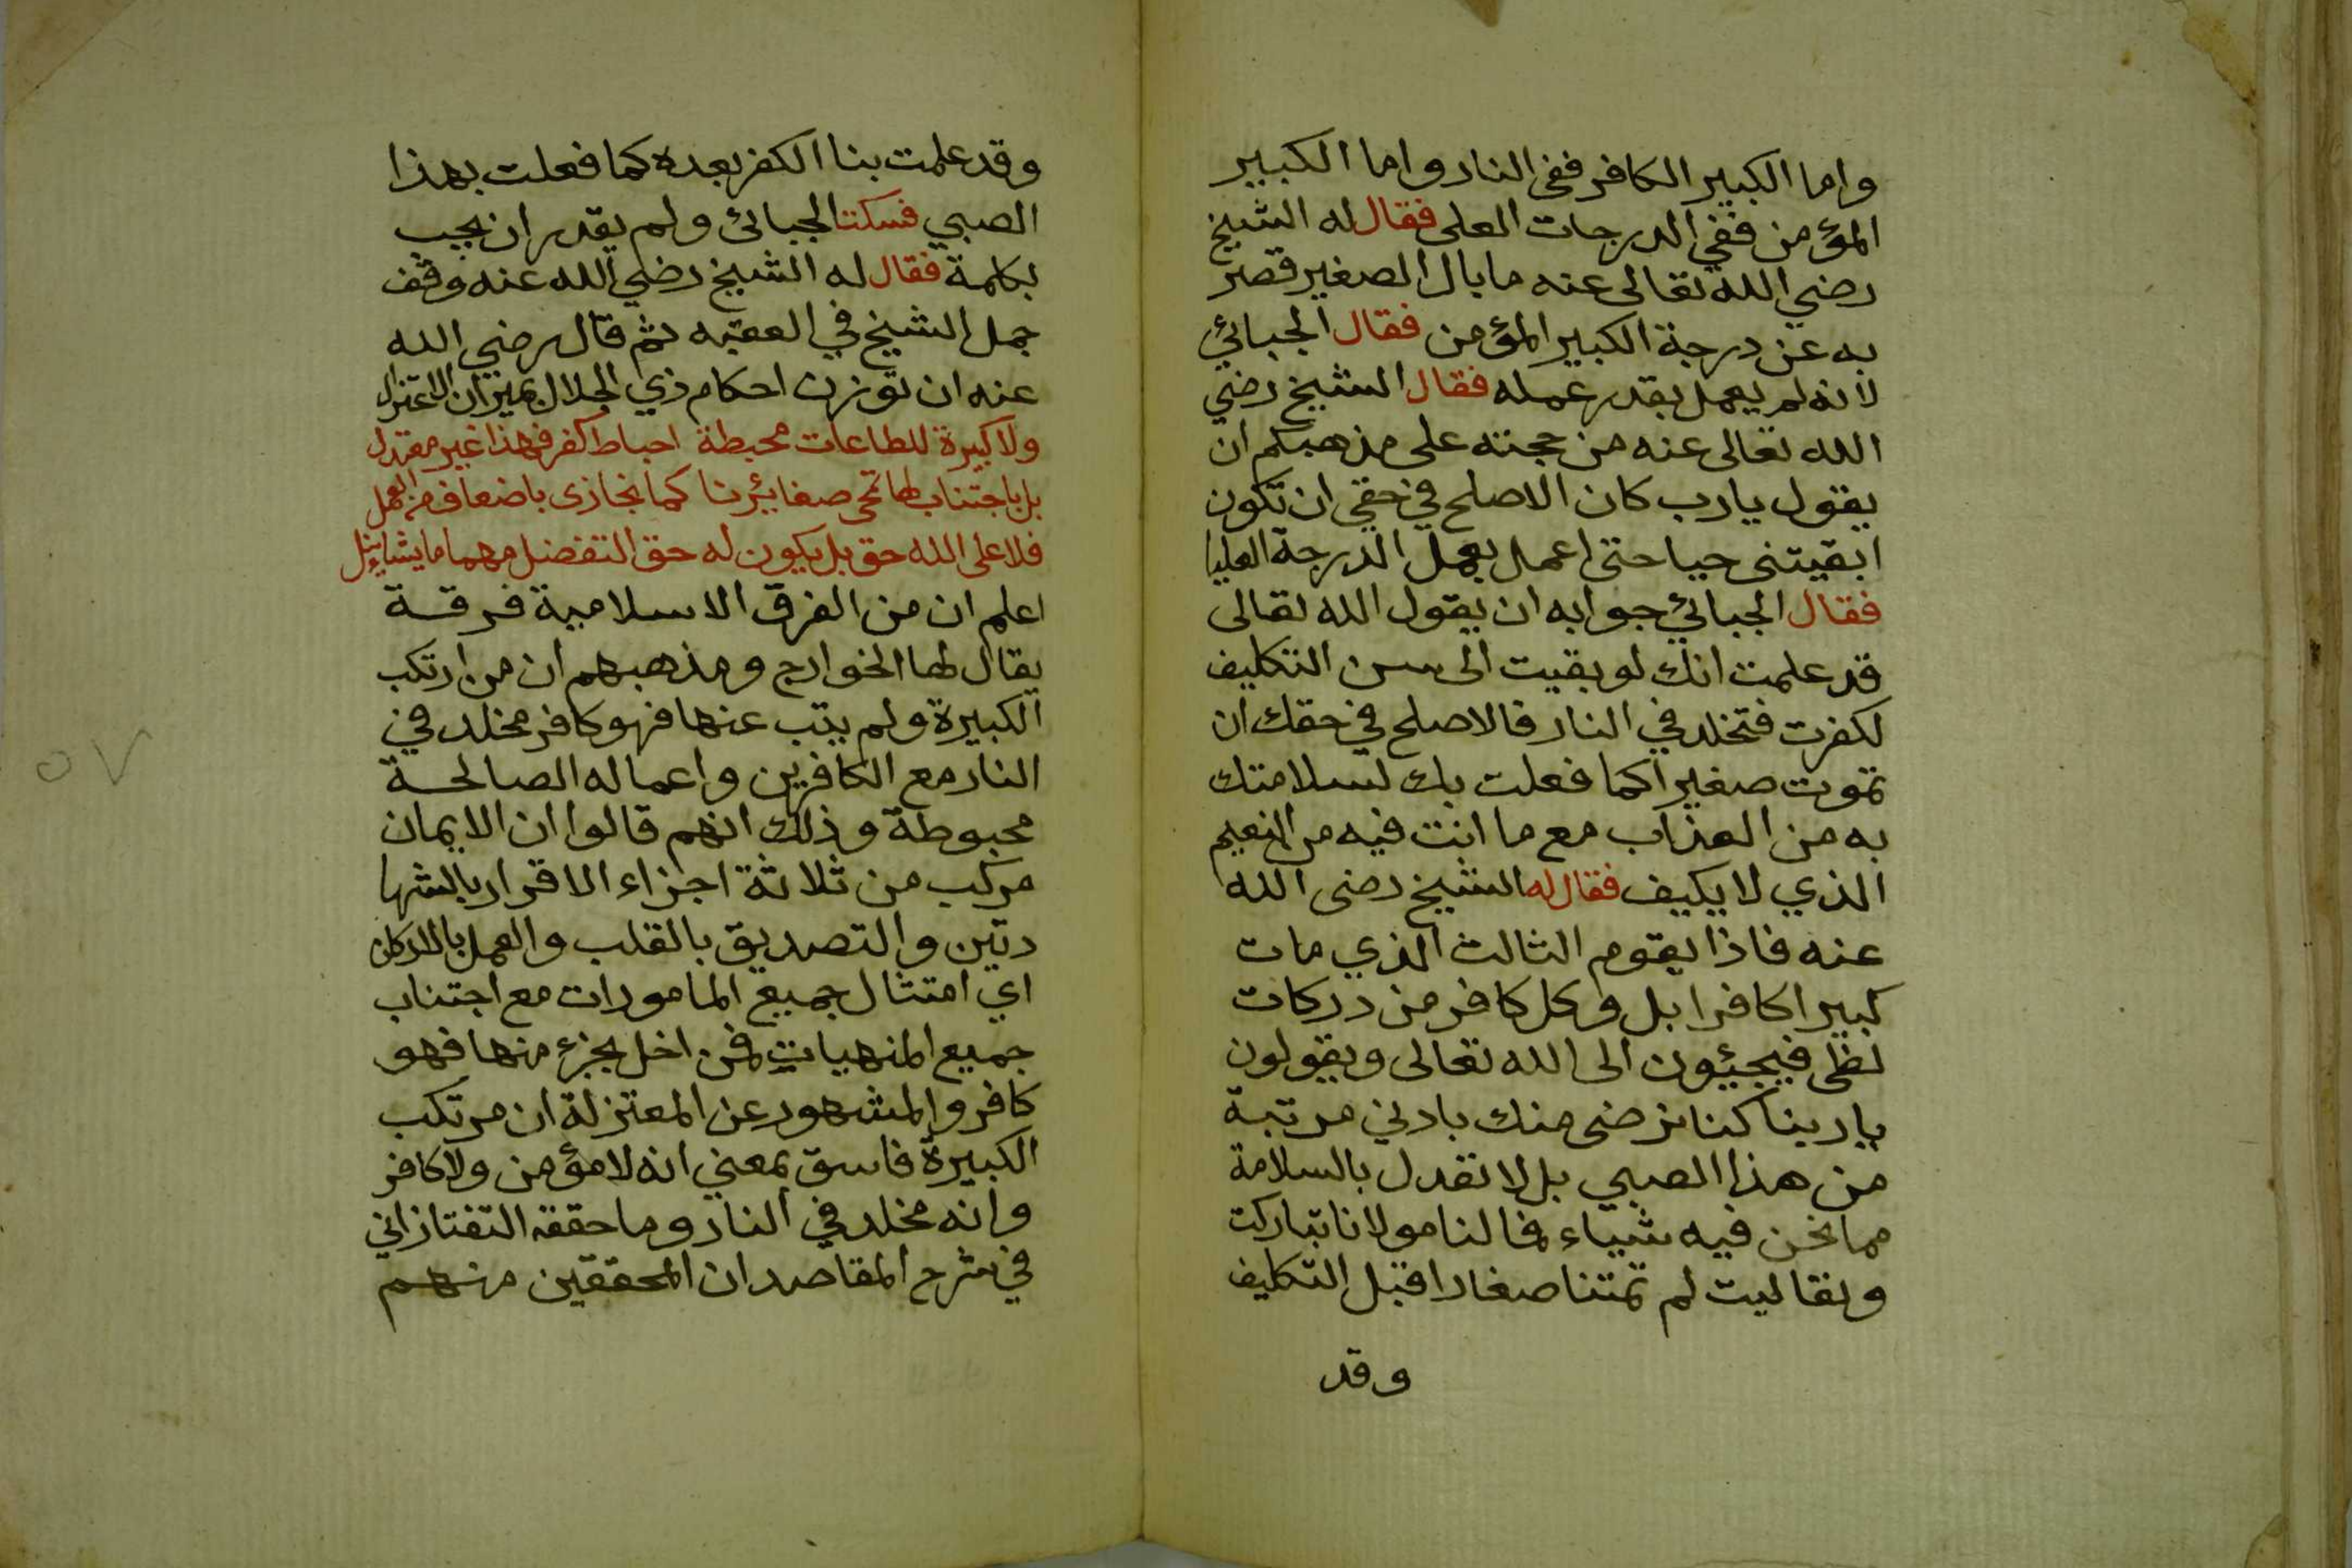 واما الكبير الكافر ففى النار واما الكبير
المؤمن ففي الدرجات العلى فقال له الشيخ
رضي الله تعالى عنه ما بال الصغير قصر
به عن درجة الكبير المؤمن فقال الجبائي
لانه لم يعمل بقدر عمله فقال الشيخ رضي
الله تعالى عنه من حجته على مذهبكم ان
يقول يارب كان الاصلح في حقي ان تكون
ابقيتنى حيا حتى اعمل بعمل الدرجة العليا
فقال الجبائي جوابه ان يقول الله تعالى
قد علمت انك لو بقيت الى سن التكليف
لكفرت فتخلد في النار فالاصلح في حقك ان
تموت صغيرا كما فعلت بك لسلامتك
به من العذاب مع ما انت فيه من النعيم
الذي لا يكيف فقال له الشيخ رضى الله
عنه فاذا يقوم الثالث الذي مات
كبيرا كافرا بل وكل كافر من دركات
لظى فيجيئون الى الله تعالى ويقولون
يا ربنا كنا نرضى منك بادني مرتبة
من هذا الصبي بل لا نعدل بالسلامة
مما نحن فيه شياء فما لنا مولانا تباركت
وتعاليت لم تمتنا صغارا قبل التكليف
وقد
وقد علمت بنا الكفر بعده كما فعلت بهذا
الصبي فسكت الجبائى ولم يقدر ان يجيب
بكلمة فقال له الشيخ رضي الله عنه وقف
جمل الشيخ في العقبه ثم قال رضي الله
عنه ان توزن احكام ذي الجلال بميزان الاعتزال
ولا كبيرة للطاعات محبطة احباط كفر فهذا غير معتدل
بل باجتناب لها تمحى صغايئرنا كما نجازى باضعاف من العمل
فلا على الله حق بل يكون له حق التفضل مهما ما يشاء ينل
اعلم ان من الفرق الاسلامية فرقة
يقال لها الخوارج ومذهبهم ان من ارتكب
الكبيرة ولم يتب عنها فهو كافر مخلد في
النار مع الكافرين واعماله الصالحة
محبوطة وذلك انهم قالوا ان الايمان
مركب من ثلاثة اجزاء الاقرار بالشها
دتين والتصديق بالقلب والعمل بالاركان
اي امتثال جميع المامورات مع اجتناب
جميع المنهيات فمن اخل بجزء منها فهو
كافر والمشهور عن المعتزلة ان مرتكب
الكبيرة فاسق بمعني انه لا مؤمن ولا كافر
وانه مخلد في النار وما حققه التفتازاني
في شرح المقاصد ان المحققين منهم
٥٧